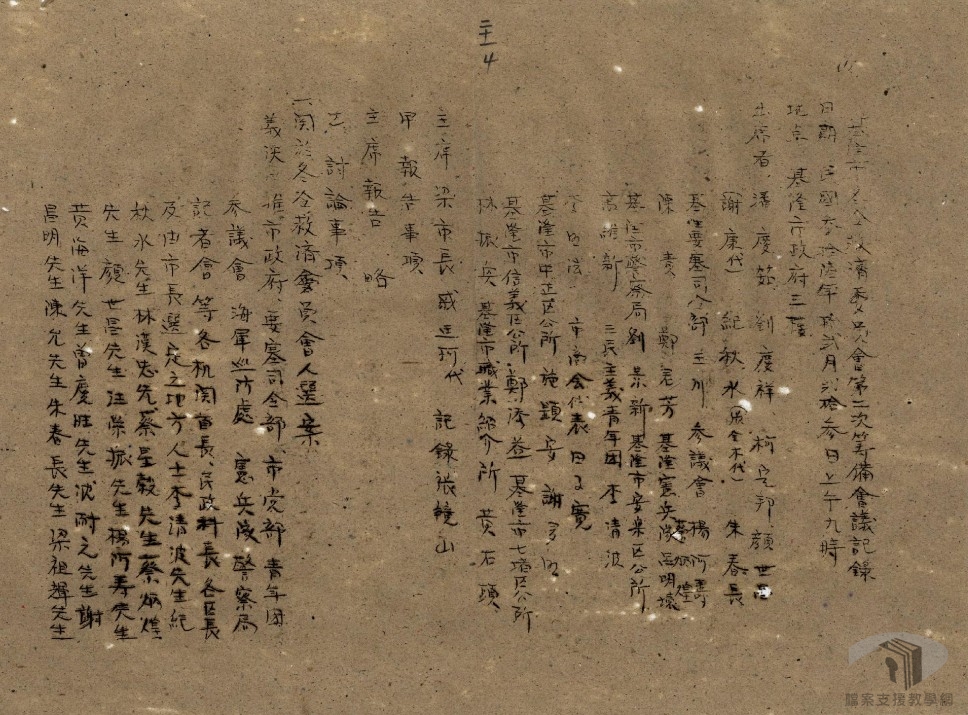 二十一 4
基隆市冬令救濟委員會第二次籌備會議記錄
日期 民國 年 月 日上午九時
地点 基隆市政府三樓
出席者 潘慶 劉慶祥 柯 邦 顏世昌
(謝康代) 紀秋水 朱春長
基隆要塞司令部 王川 參議會 楊阿壽 蔡炳煌
陳 鄭 芳 基隆憲兵隊 明壞
基隆市警察局 劉景新 基隆市安樂區公所
高維新 三民主義青年團 李清波
李 市商会代表 寬
基隆市中正区公所 施顯安 謝
基隆市信義区公所 鄭済益 基隆市七堵区公所
林振兵 基隆市職業紹介所 黃石頭
主席 梁市長 戚迋珂代 記錄 張鏡山
甲 報告事項
主席報告 略
乙 討論事項
一関於冬令救濟會員會人選案
義決 推市政府、要塞司令部、市党部、青年団
參議會 海軍巡防處 憲兵隊 警察局
記者會 等各机関首長、民政科長 各区長
及由市長選定之地方人士李清波先生 紀
秋水先生 林漢忠先 蔡星穀先生 蔡炳煌
先生 顏世昌先生 汪榮振先生 楊阿寿先生
黃海洋先生 曾慶旺先生 沈耐之先生 謝
昌明先生 陳允先生 朱春長先生 梁祖輝先生
檔案支援教學網